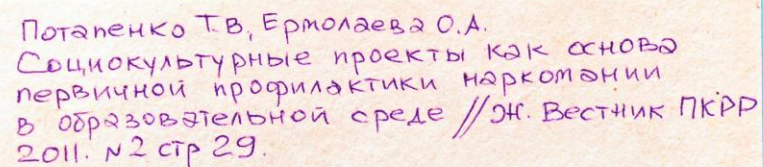 Потапенко Т.В, Ермолаева О.А.
Социокультурные проекты как основа
первичной профилактики наркомании
в образовательной среде // Ж. Вестник ПКРР
2011. №2 стр 29.